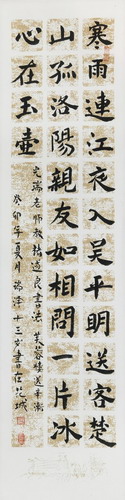 寒雨連江夜入吳平明送客楚
山孤洛陽親友如相問一片冰
心在玉壺
老師教
書法芙蓉樓送辛漸
癸卯年夏月
十三岁書於花城